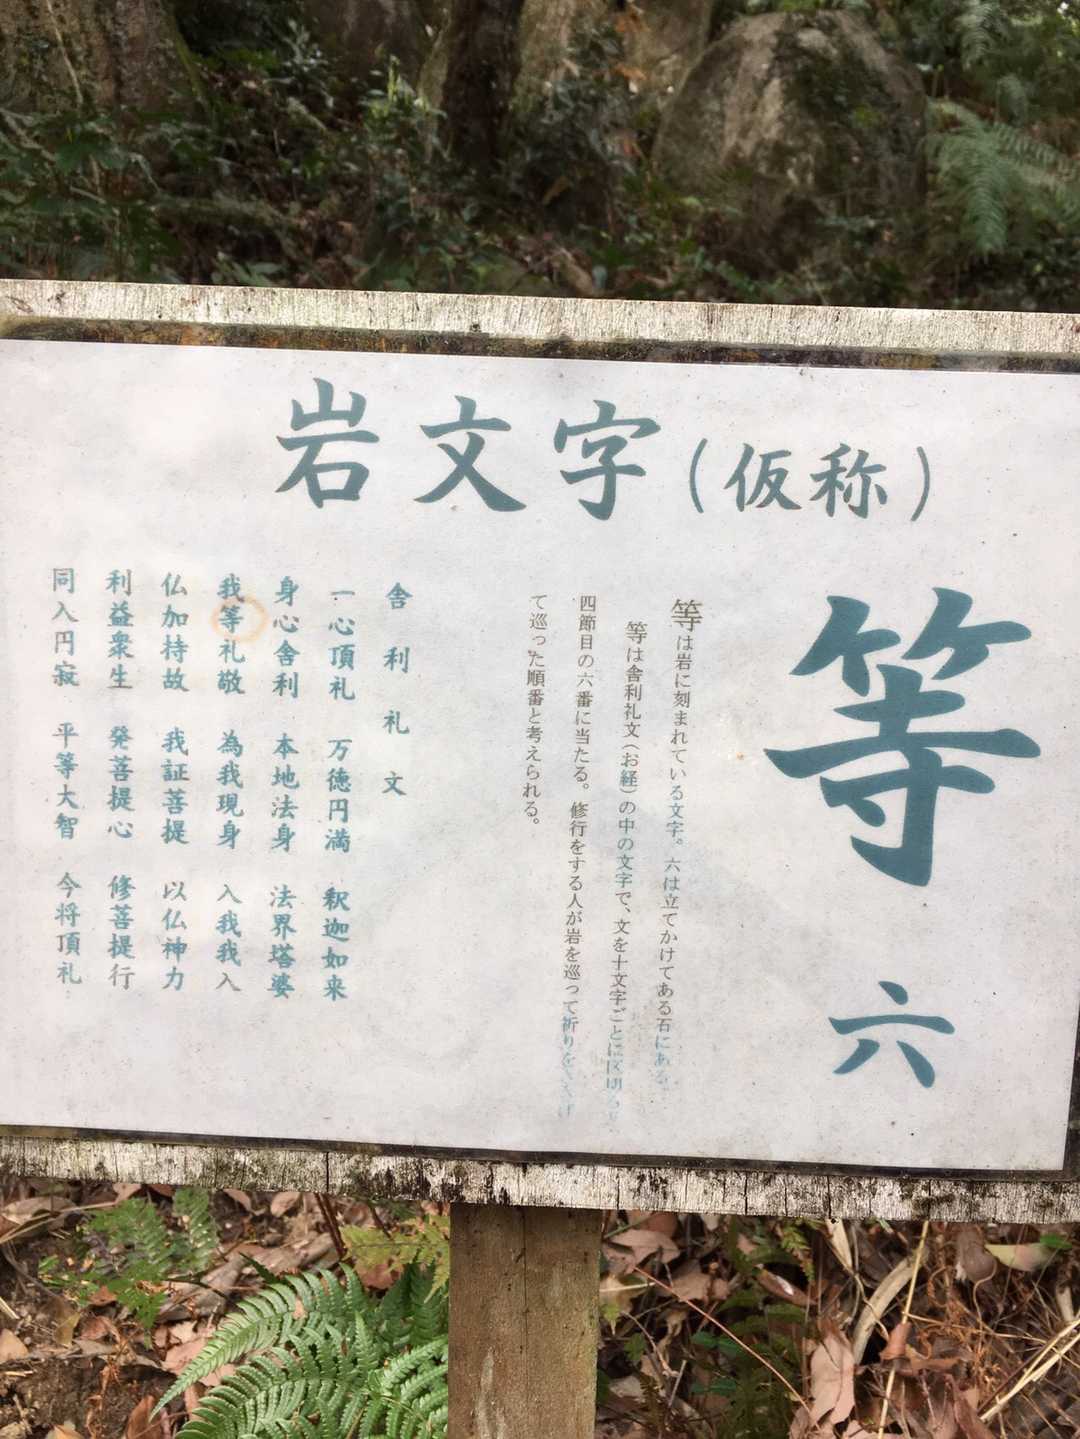 岩文字（仮称）
等 六
等は岩に刻まれている文字。六は立てかけてある石にある。
等は舎利礼文（お経）の中の文字で、文を十文字ごとに区切ると
四節目の六番に当たる。修行をする人が岩を巡って祈りをささげ
て巡った順番と考えられる。
舎利礼文
一心頂礼 万徳円満 釈迦如来
身心舎利 本地法身 法界塔婆
我等礼敬 為我現身 入我我入
仏加持故 我証菩提 以仏神力
利益衆生 発菩提心 修菩提行
同入円寂 平等大智 今将頂礼